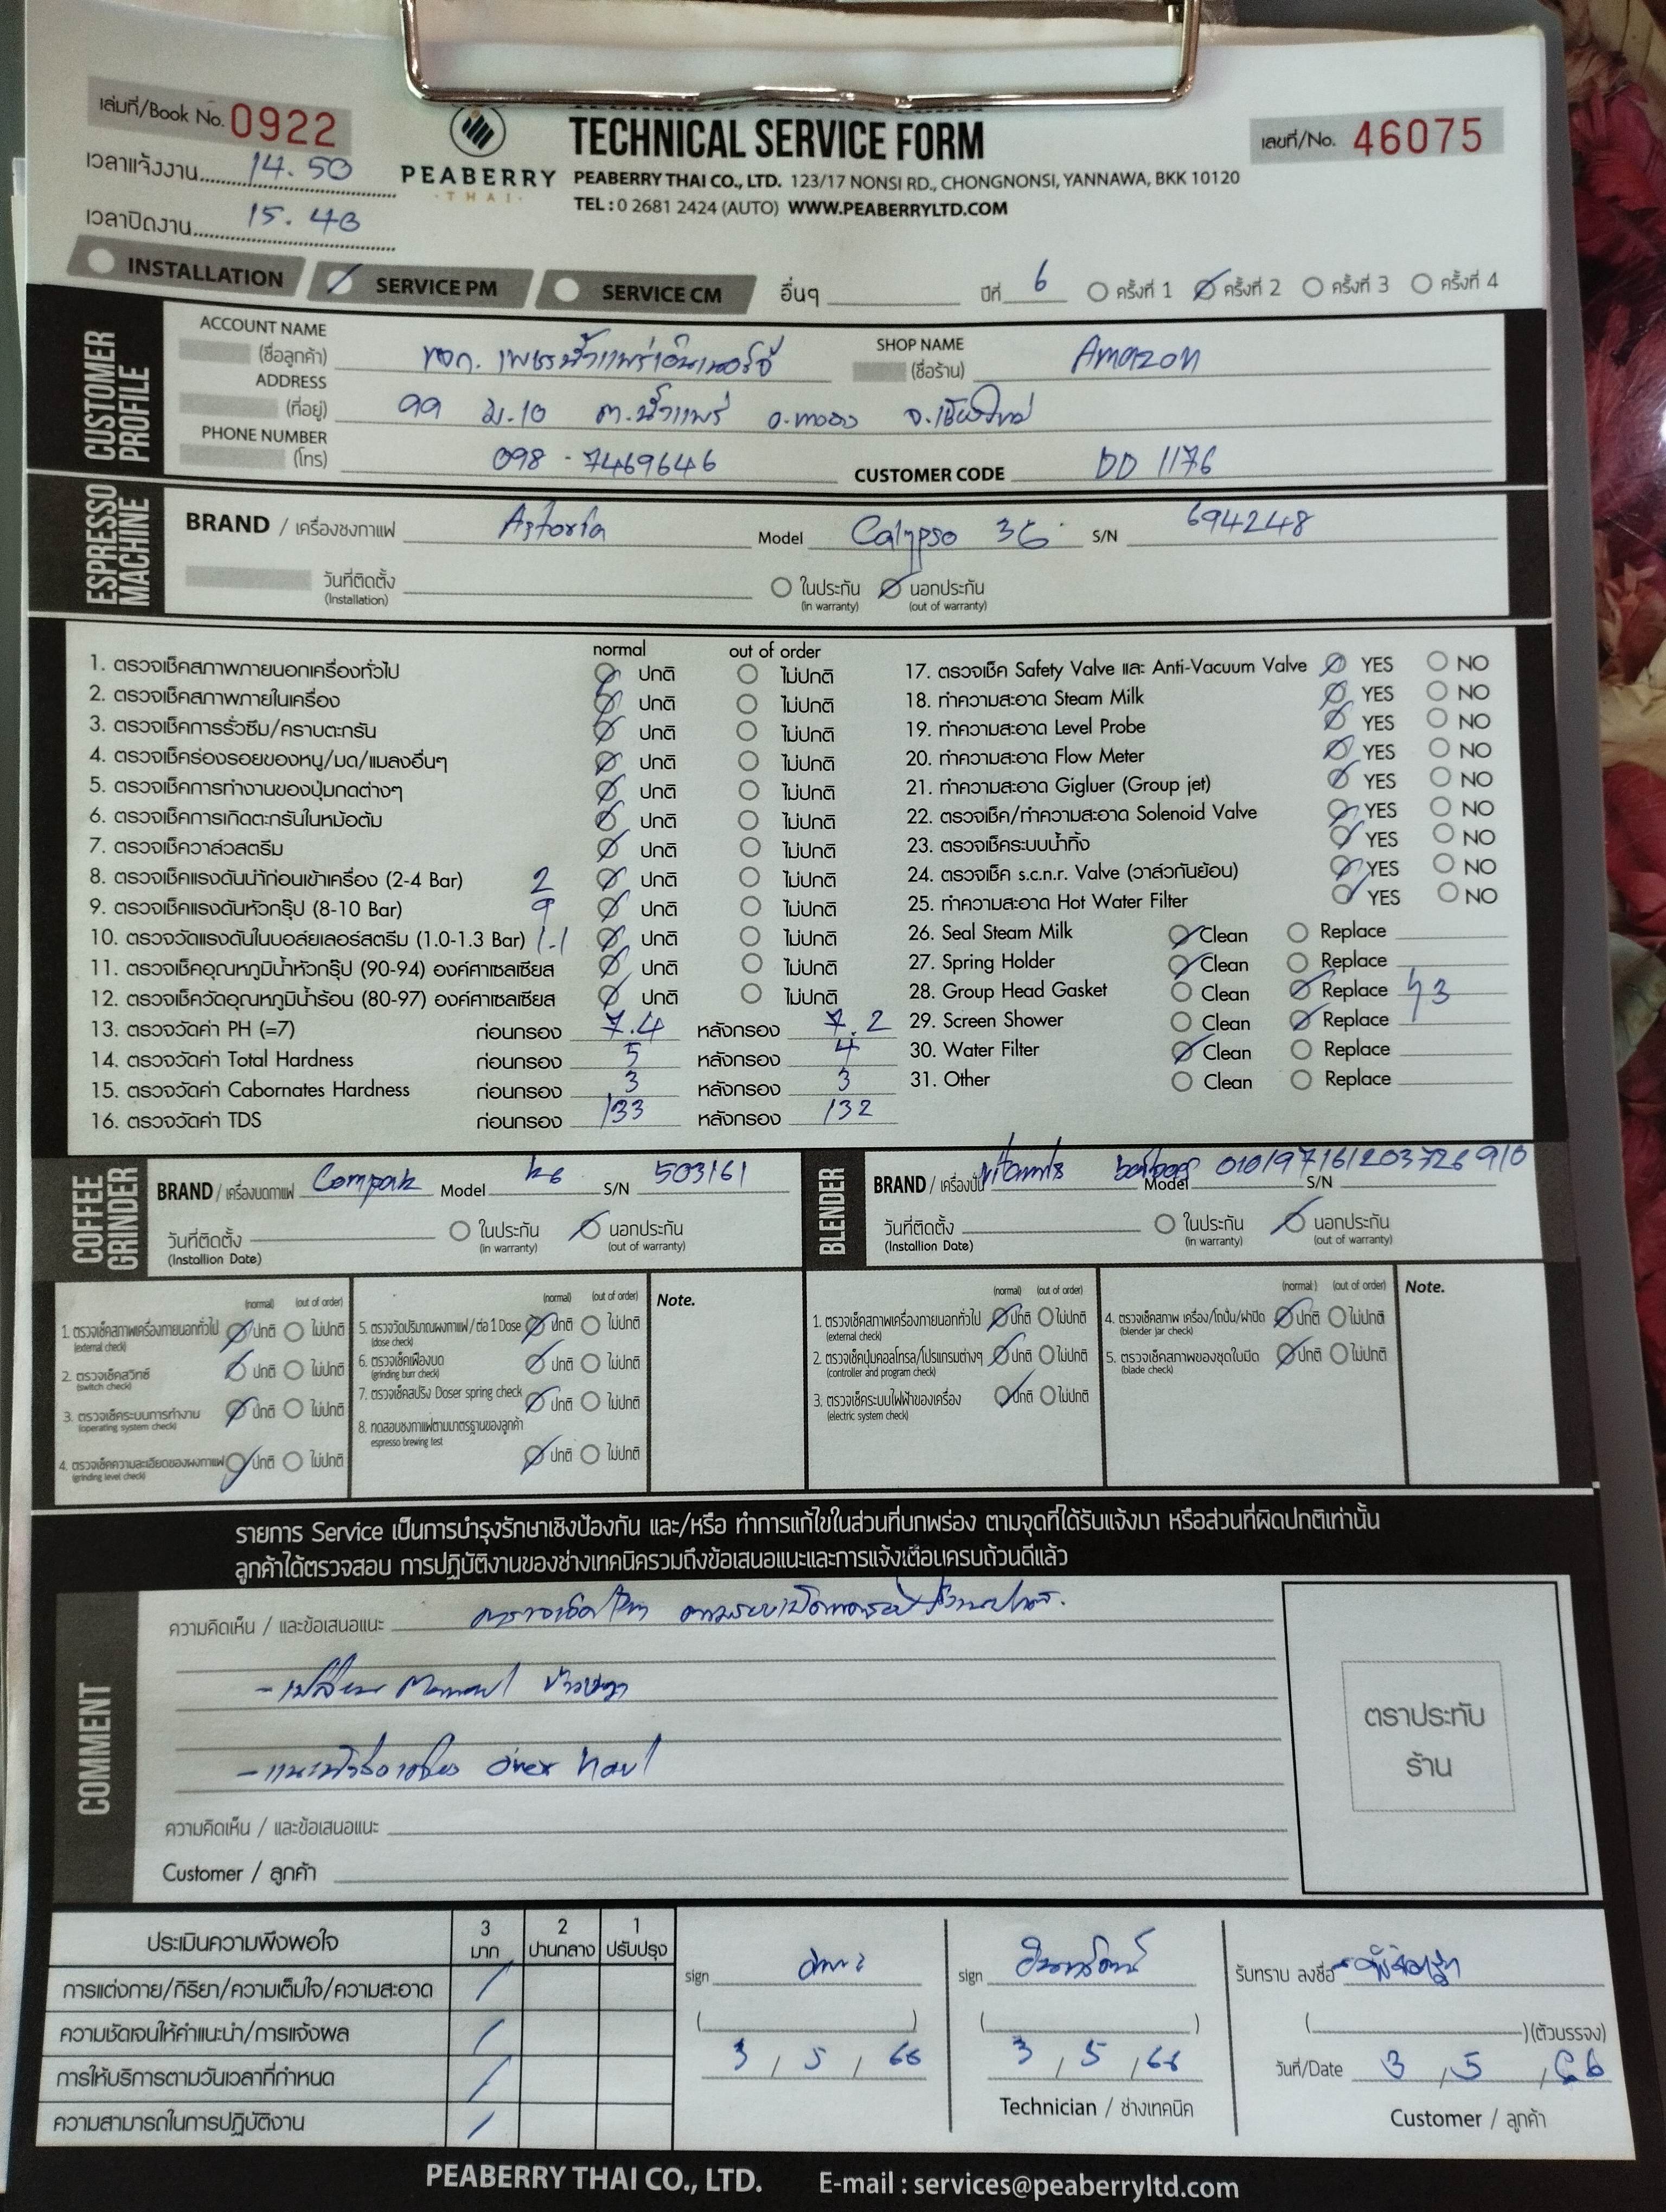 เล่มที่/Book No. 0922
เลขที่/No. 46075
PEABERRY
THAI
TECHNICAL SERVICE FORM
PEABERRY THAI CO., LTD. 123/17 NONSI RD., CHONGNONSI, YANNAWA, BKK 10120
TEL : 0 2681 2424 (AUTO) WWW.PEABERRYLTD.COM
เวลาแจ้งงาน 14.50
เวลาปิดงาน 15.40
INSTALLATION SERVICE PM SERVICE CM อื่นๆ ปีที่ 6 ครั้งที่ 1 ครั้งที่ 2 ครั้งที่ 3 ครั้งที่ 4
CUSTOMER PROFILE
ACCOUNT NAME (ชื่อลูกค้า) หจก. เพชรน้ำแพร่เอ็นเนอร์จี้ SHOP NAME (ชื่อร้าน) Amazon
ADDRESS (ที่อยู่) 99 ม.10 ต.น้ำแพร่ อ.หางดง จ.เชียงใหม่
PHONE NUMBER (โทร) 098-7469646 CUSTOMER CODE DD 1176
ESPRESSO MACHINE
BRAND / เครื่องชงกาแฟ Astoria Model Calypso 3G S/N 694248
วันที่ติดตั้ง (Installation) ในประกัน (in warranty) นอกประกัน (out of warranty)
normal out of order
1. ตรวจเช็คสภาพภายนอกเครื่องทั่วไป ปกติ ไม่ปกติ
2. ตรวจเช็คสภาพภายในเครื่อง ปกติ ไม่ปกติ
3. ตรวจเช็คการรั่วซึม/คราบตะกรัน ปกติ ไม่ปกติ
4. ตรวจเช็คร่องรอยของหนู/มด/แมลงอื่นๆ ปกติ ไม่ปกติ
5. ตรวจเช็คการทำงานของปุ่มกดต่างๆ ปกติ ไม่ปกติ
6. ตรวจเช็คการเกิดตะกรันในหม้อต้ม ปกติ ไม่ปกติ
7. ตรวจเช็ควาล์วสตรีม ปกติ ไม่ปกติ
8. ตรวจเช็คแรงดันน้ำก่อนเข้าเครื่อง (2-4 Bar) 2 ปกติ ไม่ปกติ
9. ตรวจเช็คแรงดันหัวกรุ๊ป (8-10 Bar) 9 ปกติ ไม่ปกติ
10. ตรวจวัดแรงดันในบอล์ยเลอร์สตรีม (1.0-1.3 Bar) 1.1 ปกติ ไม่ปกติ
11. ตรวจเช็คอุณหภูมิน้ำหัวกรุ๊ป (90-94) องค์ศาเซลเซียส ปกติ ไม่ปกติ
12. ตรวจเช็ควัดอุณหภูมิน้ำร้อน (80-97) องค์ศาเซลเซียส ปกติ ไม่ปกติ
13. ตรวจวัดค่า PH (=7) ก่อนกรอง 7.4 หลังกรอง 7.2
14. ตรวจวัดค่า Total Hardness ก่อนกรอง 5 หลังกรอง 4
15. ตรวจวัดค่า Cabornates Hardness ก่อนกรอง 3 หลังกรอง 3
16. ตรวจวัดค่า TDS ก่อนกรอง 133 หลังกรอง 132
17. ตรวจเช็ค Safety Valve และ Anti-Vacuum Valve YES NO
18. ทำความสะอาด Steam Milk YES NO
19. ทำความสะอาด Level Probe YES NO
20. ทำความสะอาด Flow Meter YES NO
21. ทำความสะอาด Gigluer (Group jet) YES NO
22. ตรวจเช็ค/ทำความสะอาด Solenoid Valve YES NO
23. ตรวจเช็คระบบน้ำทิ้ง YES NO
24. ตรวจเช็ค s.c.n.r. Valve (วาล์วกันย้อน) YES NO
25. ทำความสะอาด Hot Water Filter YES NO
26. Seal Steam Milk Clean Replace
27. Spring Holder Clean Replace
28. Group Head Gasket Clean Replace
29. Screen Shower Clean Replace
30. Water Filter Clean Replace
31. Other Clean Replace
COFFEE GRINDER
BRAND / เครื่องบดกาแฟ Compak Model K6 S/N 503161
วันที่ติดตั้ง (Installion Date) ในประกัน (in warranty) นอกประกัน (out of warranty)
BLENDER
BRAND / เครื่องปั่น Model S/N
วันที่ติดตั้ง (Installion Date) ในประกัน (in warranty) นอกประกัน (out of warranty)
(normal) (out of order)
1. ตรวจเช็คสภาพเครื่องภายนอกทั่วไป (external check) ปกติ ไม่ปกติ
2. ตรวจเช็คสวิทซ์ (switch check) ปกติ ไม่ปกติ
3. ตรวจเช็คระบบการทำงาน (operating system check) ปกติ ไม่ปกติ
4. ตรวจเช็คความละเอียดของผงกาแฟ (grinding level check) ปกติ ไม่ปกติ
(normal) (out of order)
5. ตรวจวัดปริมาณผงกาแฟ/ต่อ 1 Dose (dose check) ปกติ ไม่ปกติ
6. ตรวจเช็คเฟืองบด (grinding burr check) ปกติ ไม่ปกติ
7. ตรวจเช็คสปริง Doser spring check ปกติ ไม่ปกติ
8. ทดสอบชงกาแฟตามมาตรฐานของลูกค้า espresso brewing test ปกติ ไม่ปกติ
Note.
(normal) (out of order)
1. ตรวจเช็คสภาพเครื่องภายนอกทั่วไป (external check) ปกติ ไม่ปกติ
2. ตรวจเช็คปุ่มคอลโทรล/โปรแกรมต่างๆ (controller and program check) ปกติ ไม่ปกติ
3. ตรวจเช็คระบบไฟฟ้าของเครื่อง (electric system check) ปกติ ไม่ปกติ
(normal) (out of order)
4. ตรวจเช็คสภาพ เครื่อง/โถปั่น/ฝาปิด (blender jar check) ปกติ ไม่ปกติ
5. ตรวจเช็คสภาพของชุดใบมีด (blade check) ปกติ ไม่ปกติ
Note.
รายการ Service เป็นการบำรุงรักษาเชิงป้องกัน และ/หรือ ทำการแก้ไขในส่วนที่บกพร่อง ตามจุดที่ได้รับแจ้งมา หรือส่วนที่ผิดปกติเท่านั้น
ลูกค้าได้ตรวจสอบ การปฏิบัติงานของช่างเทคนิครวมถึงข้อเสนอแนะและการแจ้งเตือนครบถ้วนดีแล้ว
COMMENT
ความคิดเห็น / และข้อเสนอแนะ
- เปลี่ยน Manual
- Over haul
ความคิดเห็น / และข้อเสนอแนะ
Customer / ลูกค้า
ตราประทับ
ร้าน
ประเมินความพึงพอใจ 3 มาก 2 ปานกลาง 1 ปรับปรุง
การแต่งกาย/กิริยา/ความเต็มใจ/ความสะอาด
ความชัดเจนให้คำแนะนำ/การแจ้งผล
การให้บริการตามวันเวลาที่กำหนด
ความสามารถในการปฏิบัติงาน
sign
3 / 5 / 66
sign
3 / 5 / 66
Technician / ช่างเทคนิค
รับทราบ ลงชื่อ
(ตัวบรรจง)
วันที่/Date 3 / 5 / 66
Customer / ลูกค้า
PEABERRY THAI CO., LTD. E-mail : services@peaberryltd.com